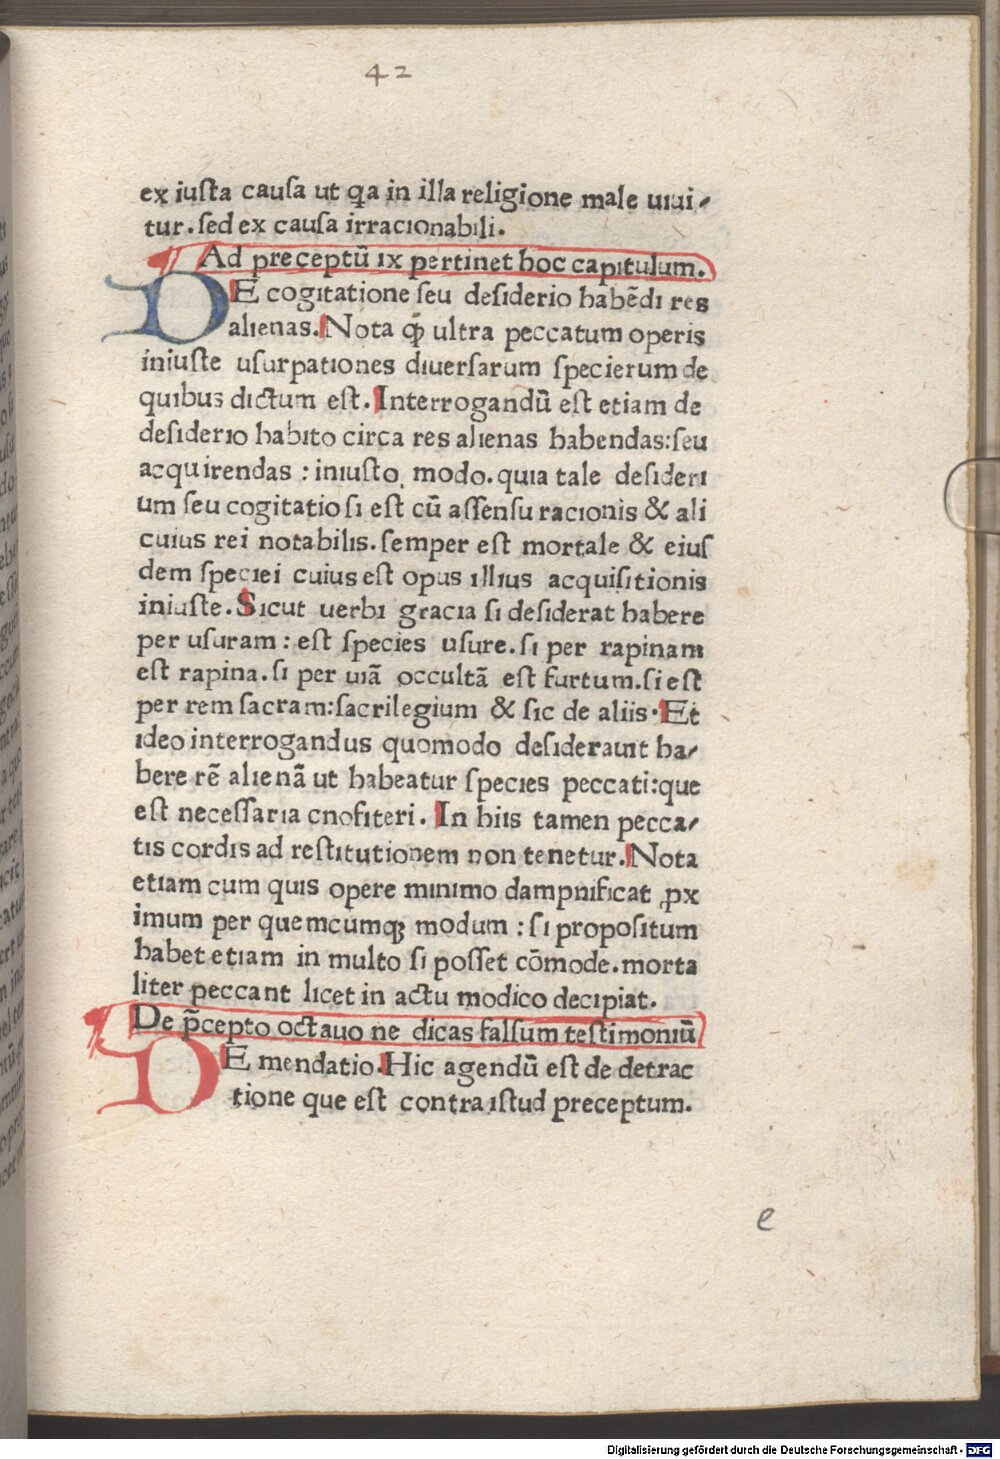 42
ex iuſta cauſa ut qa in illa religione male uiui⸗
tur. ſed ex cauſa irracionabili.
Ad preceptū ix pertinet hoc capitulum.
DE cogitatione ſeu deſiderio habēdi res
alienas. Nota ꝙ ultra peccatum operis
iniuſte uſurpationes diuerſarum ſpecierum de
quibus dictum eſt. Interrogandū eſt etiam de
deſiderio habito circa res alienas habendas: ſeu
acquirendas : iniuſto modo. quia tale deſideri
um ſeu cogitatio ſi eſt cū aſſenſu racionis & ali
cuius rei notabilis. ſemper eſt mortale & eiuſ
dem ſpeciei cuius eſt opus illius acquiſitionis
iniuſte. Sicut uerbi gracia ſi deſiderat habere
per uſuram : eſt ſpecies uſure. ſi per rapinam
eſt rapina. ſi per uiā occultā eſt furtum. ſi eſt
per rem ſacram: ſacrilegium & ſic de aliis. Et
ideo interrogandus quomodo deſiderauit ha⸗
bere rē alienā ut habeatur ſpecies peccati: que
eſt neceſſaria cnofiteri. In hiis tamen pecca⸗
tis cordis ad reſtitutionem non tenetur. Nota
etiam cum quis opere minimo dampnificat ꝓx
imum per quemcumqꝫ modum : ſi propoſitum
habet etiam in multo ſi poſſet cōmode. morta
liter peccant licet in actu modico decipiat.
De p̄cepto octauo ne dicas falſum teſtimoniū
DE mendatio. Hic agendū eſt de detrac
tione que eſt contra iſtud preceptum.
e
Digitalisierung gefördert durch die Deutsche Forschungsgemeinschaft - DFG